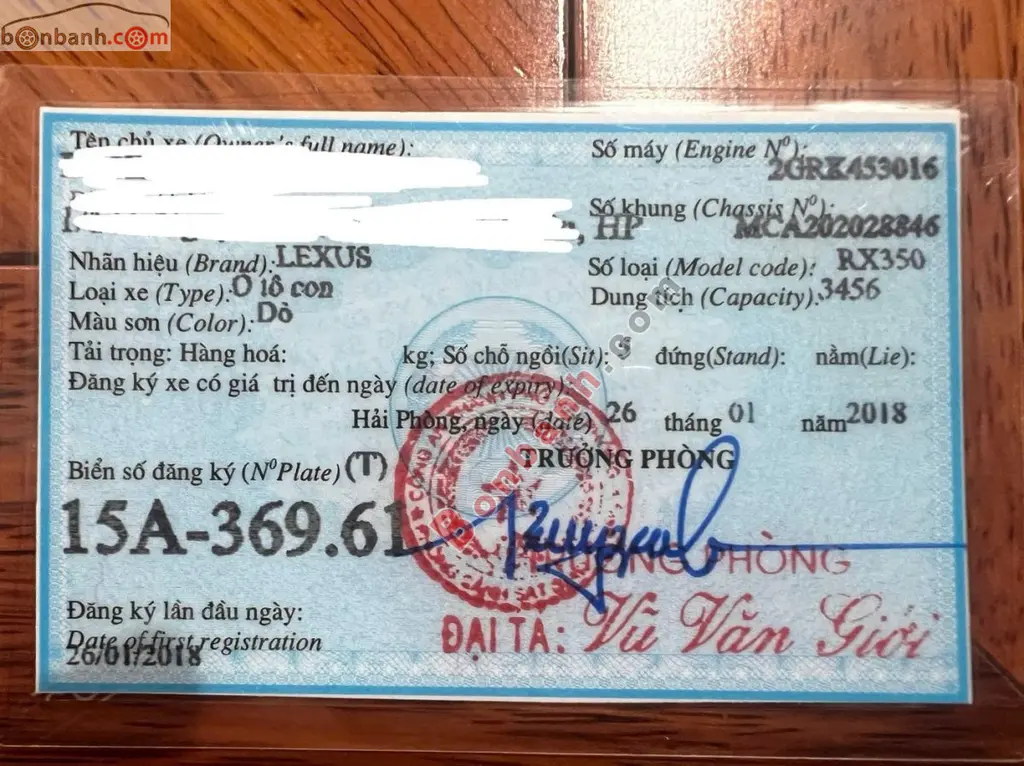 bonbanh.com
Tên chủ xe (Owner's full name):
Số máy (Engine Nº):
2GRX453016
Số khung (Chassis Nº):
, HP MCA202028846
Nhãn hiệu (Brand): LEXUS
Số loại (Model code): RX350
Loại xe (Type): Ô tô con
Dung tích (Capacity): 3456
Màu sơn (Color): Đỏ
Tải trọng: Hàng hoá: kg; Số chỗ ngồi(Sit): 5 đứng(Stand): nằm(Lie):
Đăng ký xe có giá trị đến ngày (date of expiry):
Hải Phòng, ngày (date) 26 tháng 01 năm 2018
Biển số đăng ký (NºPlate) (T)
TRƯỞNG PHÒNG
15A-369.61
TRƯỞNG PHÒNG
Đăng ký lần đầu ngày:
ĐẠI TÁ: Vũ Văn Giới
Date of first registration
26/01/2018
Bonbanh.com